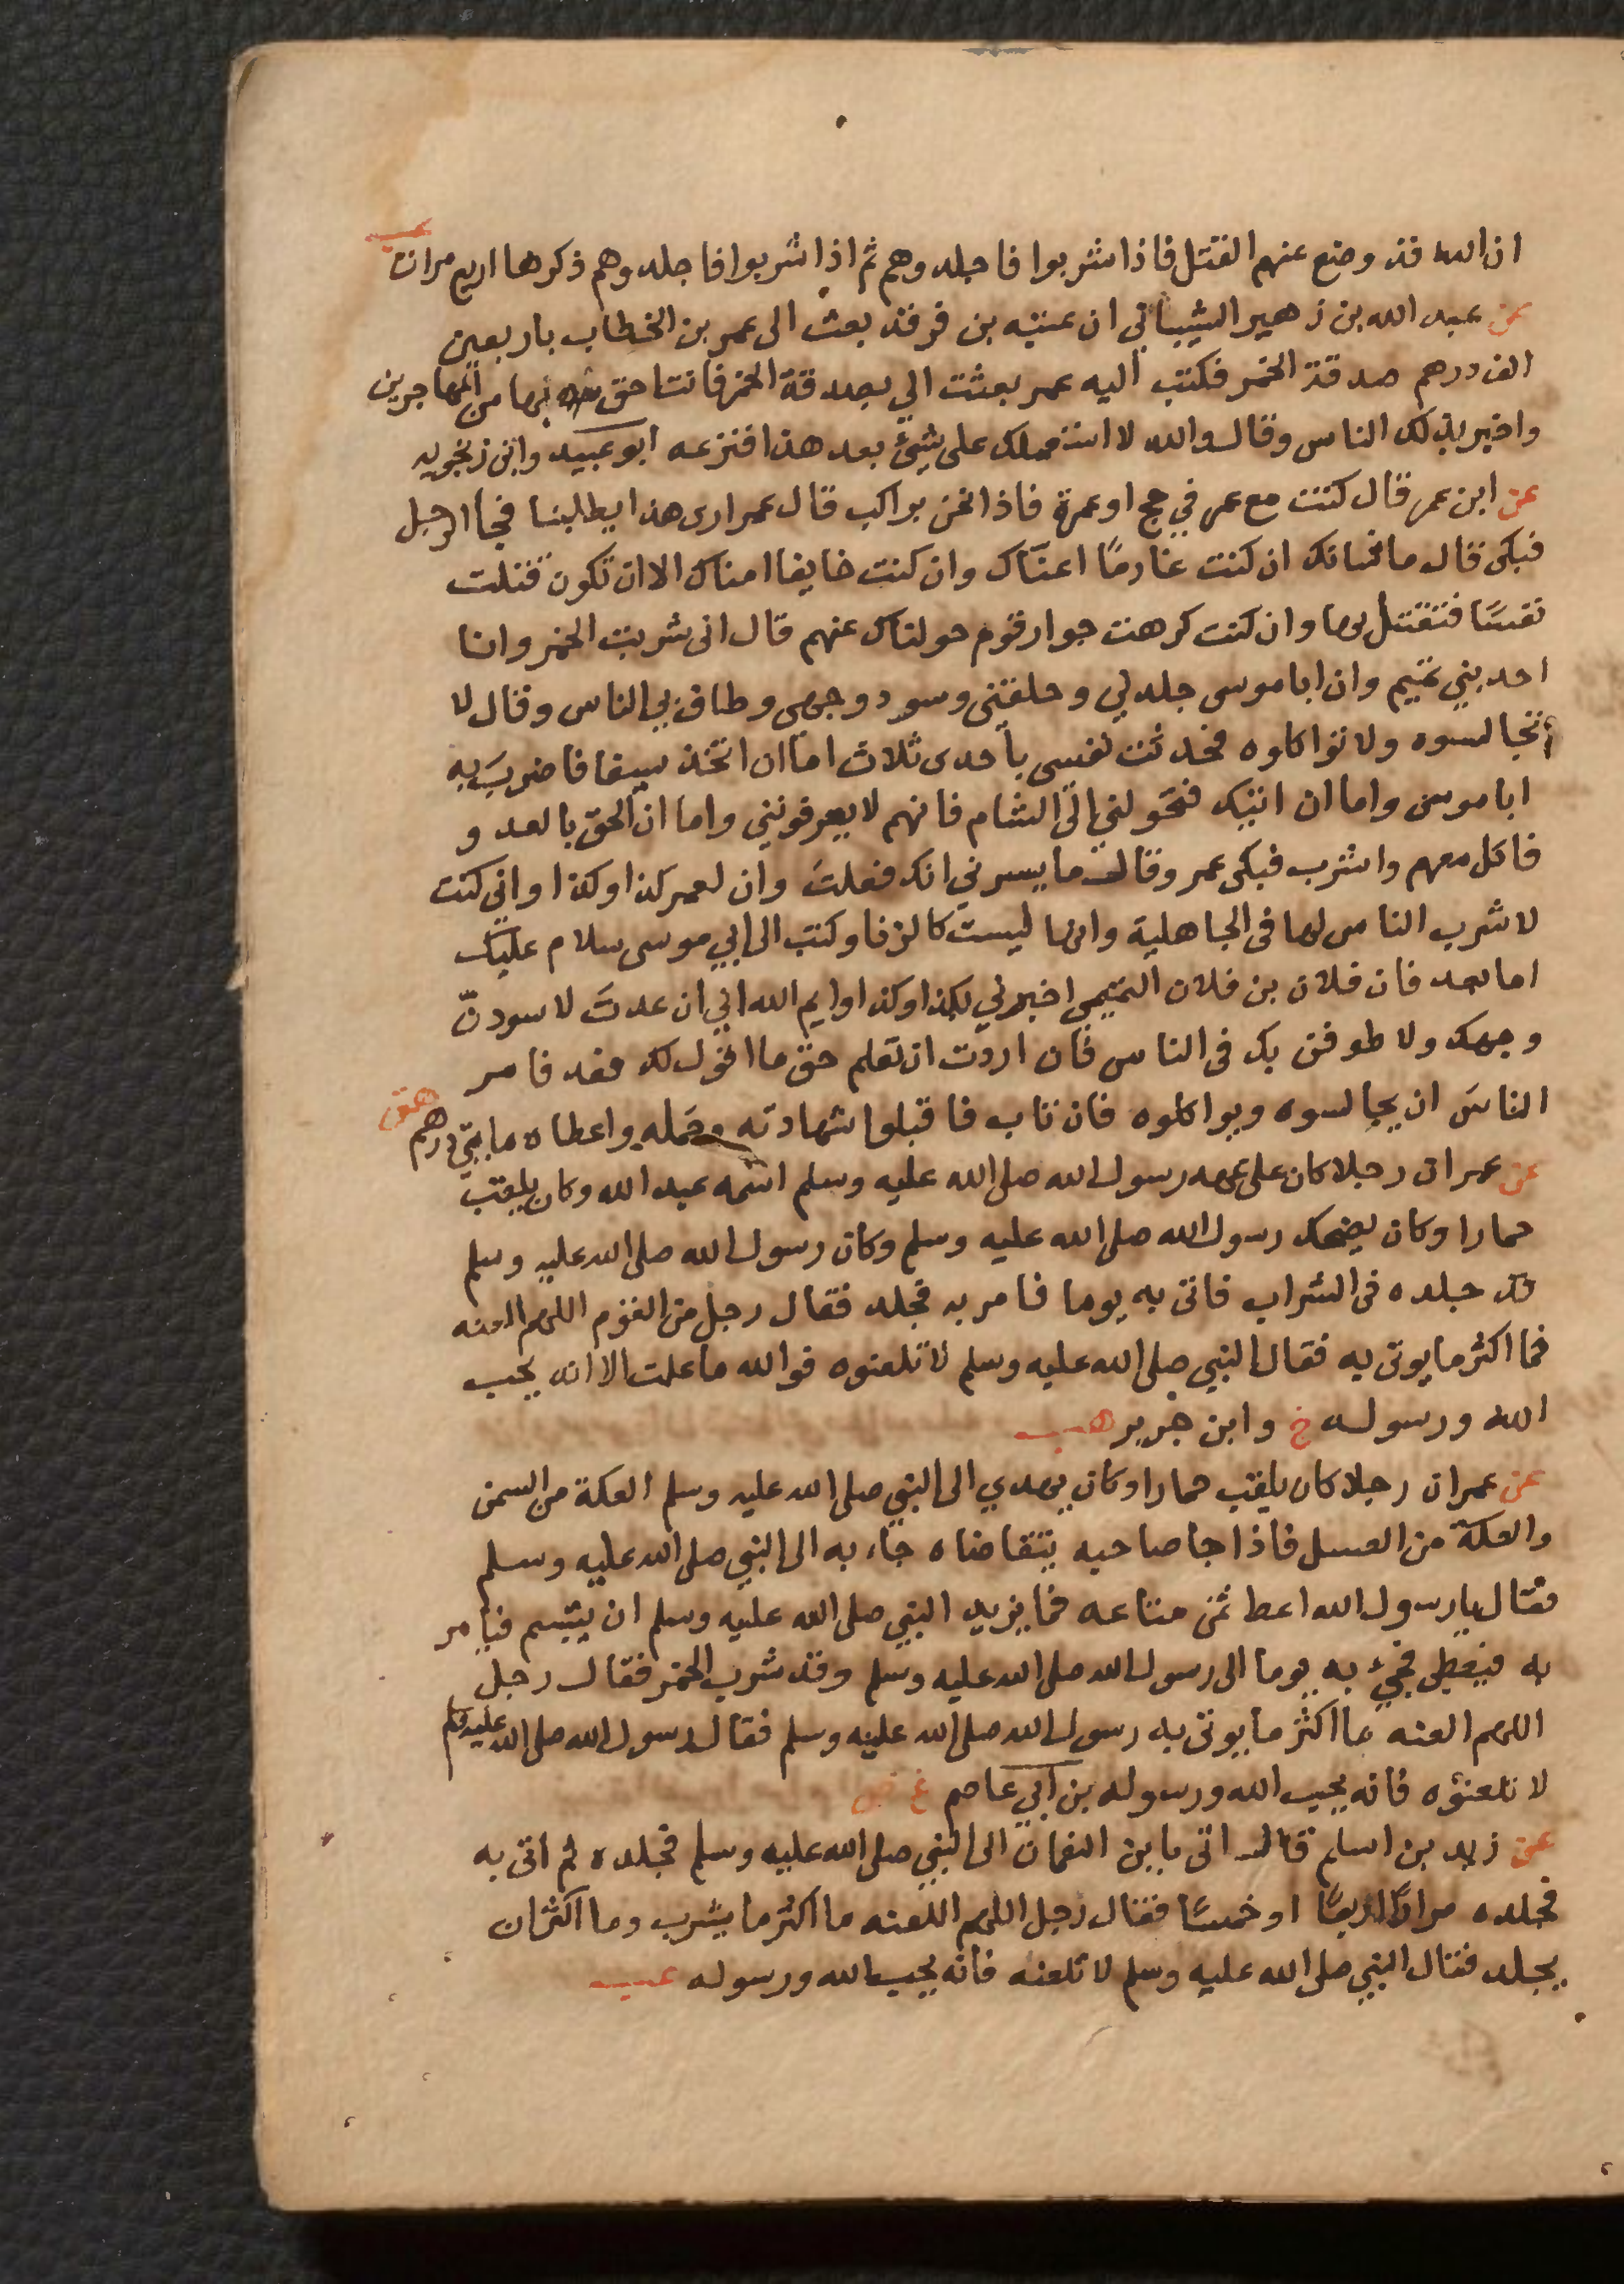 ان الله قد وضع عنهم القتل فاذا شربوا فاجلدوهم ثم اذا شربوا فاجلدوهم ذكرها اربع مرات عب
عن عبد الله بن زهير الشيباني ان عتبة بن فرقد بعث الى عمر بن الخطاب باربعين
الف درهم صدقة الخمر فكتب اليه عمر بعثت الي بصدقة الخمر فانت احق بها من المهاجرين
واخبر بذلك الناس وقال والله لا استعملك على شيئ بعد هذا فنزعه ابو عبيد وابن زنجويه
عن ابن عمر قال كنت مع عمر في حج او عمرة فاذا نحن براكب قال عمر ارى هذا يطلبنا فجا الرجل
فبكى قال ما شانك ان كنت غارمًا اعناك وان كنت خايفا امناك الا ان تكون قتلت
نفسًا فتقتل بها وان كنت كرهت جوار قوم حولناك عنهم قال انى شربت الخمر وانا
احد بني تميم وان ابا موسى جلدني وحلقني وسود وجهى وطاف بي الناس وقال لا
تجالسوه ولا تواكلوه فحدثت نفسى باحدى ثلاث اما ان اتخذ سيفا فاضرب به
ابا موسى واما ان اتيك فتحولني الى الشام فانهم لا يعرفونني واما ان الحق بالعدو
فاكل معهم واشرب فبكى عمر وقال ما يسرني انك فعلت وان لعمر كذا وكذا وانى كنت
لا شرب الناس لها فى الجاهلية وانها ليست كالزنا وكتب الى ابي موسى سلام عليك
اما بعد فان فلان بن فلان التميمى اخبرني بكذا وكذا وايم الله اني ان عدت لاسودنّ
وجهك ولا طوفن بك فى الناس فان اردت ان تعلم حق ما اقول لك فعد فامر
الناس ان يجالسوه ويواكلوه فان تاب فاقبلوا شهادته وحمله واعطاه مايتى درهم هق
عن عمر ان رجلا كان على عهد رسول الله صلى الله عليه وسلم اسمه عبد الله وكان يلقب
حمارا وكان يضحك رسول الله صلى الله عليه وسلم وكان رسول الله صلى الله عليه وسلم
قد جلده فى الشراب فاتى به يوما فامر به فجلد فقال رجل من القوم اللهم العنه
فما اكثر ما يوتى به فقال النبي صلى الله عليه وسلم لا تلعنوه فوالله ما علمت الا انه يحب
الله ورسوله خ وابن جرير هب
عن عمر ان رجلا كان يلقب حمارا وكان يهدي الى النبي صلى الله عليه وسلم العكة من السمن
والعكة من العسل فاذا جا صاحبه يتقاضاه جاء به الى النبي صلى الله عليه وسلم
فقال يا رسول الله اعط ثمن متاعه فما يزيد النبي صلى الله عليه وسلم ان يتبسم فيامر
به فيعطى فجيئ به يوما الى رسول الله صلى الله عليه وسلم وقد شرب الخمر فقال رجل
اللهم العنه ما اكثر ما يوتى به رسول الله صلى الله عليه وسلم فقال رسول الله صلى الله عليه وسلم
لا تلعنوه فانه يحب الله ورسوله بن ابي عاصم ع ض
عن زيد بن اسلم قال اتى بابن النعمان الى النبي صلى الله عليه وسلم فجلده ثم اتى به
فجلده مرارًا اربعًا او خمسًا فقال رجل اللهم اللعنه ما اكثر ما يشرب وما اكثر ان
يجلد فقال النبي صلى الله عليه وسلم لا تلعنه فانه يحب الله ورسوله عب